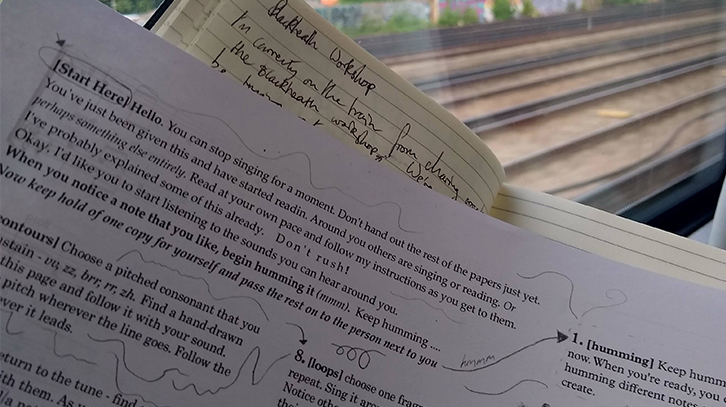 Blackheath Workshop
I'm currently on the train from charing
the Blackheath workshop. We're
[Start Here] Hello. You can stop singing for a moment. Don't hand out the rest of the papers just yet.
You've just been given this and have started readin. Around you others are singing or reading. Or
perhaps something else entirely. Read at your own pace and follow my instructions as you get to them.
I've probably explained some of this already. Don't rush!
Okay. I'd like you to start listening to the sounds you can hear around you.
When you notice a note that you like, begin humming it (mmm). Keep humming ....
Now keep hold of one copy for yourself and pass the rest on to the person next to you
hmmm
contours] Choose a pitched consonant that you
sustain - vv, zz, brr, rr, zh. Find a hand-drawn
this page and follow it with your sound.
pitch wherever the line goes. Follow the
ver it leads.
eturn to the tune - find
ith them. As
8. [loops] choose one frag
repeat. Sing it
Notice
1. [humming] Keep humm
now. When you're ready, you
humming different notes
create.